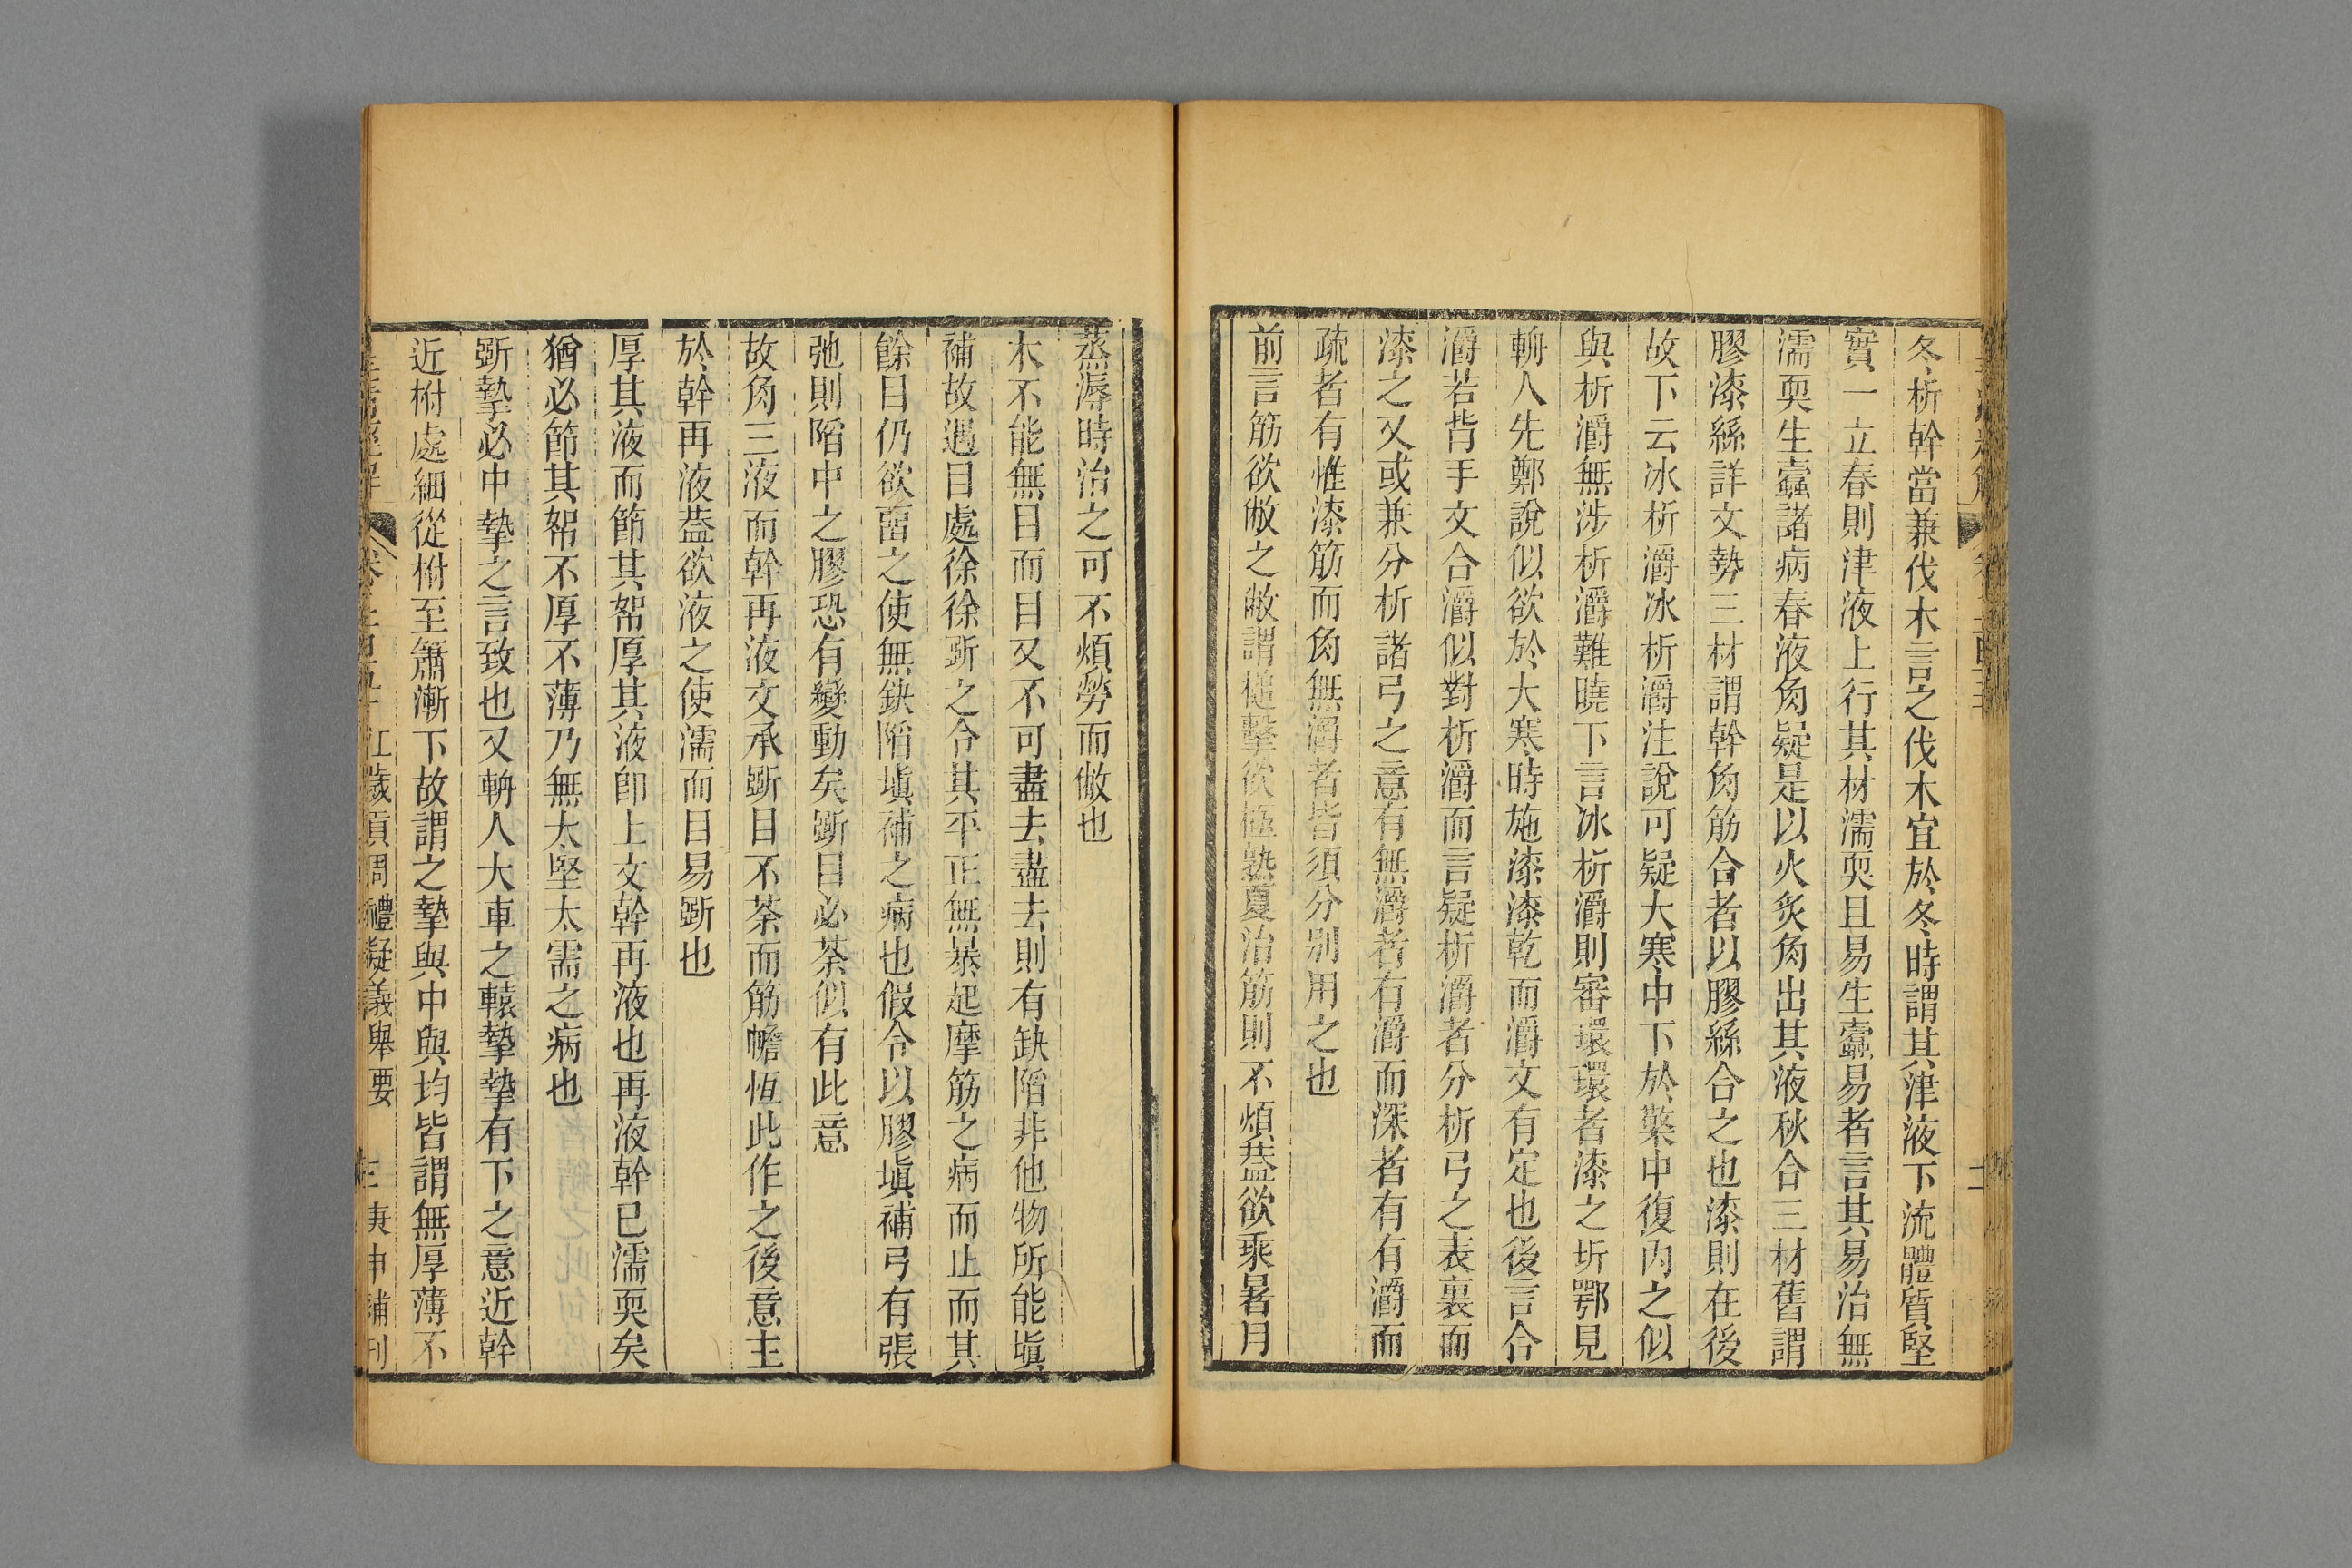 冬析幹當兼伐木言之伐木宜於冬時謂其津液下流體質堅
實一立春則津液上行其材濡耎且易生蠧易者言其易治無
濡耎生蠧諸病春液角疑是以火炙角出其液秋合三材舊謂
膠漆絲詳文勢三材謂幹角筋合者以膠絲合之也漆則在後
故下云冰析灂冰析灂注說可疑大寒中下於檠中復內之似
與析灂無涉析灂難曉下言冰析灂則審環環者漆之圻鄂見
輈人先鄭說似欲於大寒時施漆漆乾而灂文有定也後言合
灂若背手文合灂似對析灂而言疑析灂者分析弓之表裏而
漆之又或兼分析諸弓之意有無灂者有灂而深者有有灂而
疏者有惟漆筋而角無灂者皆須分別用之也
前言筋欲敝之敝謂槌擊欲極熟夏治筋則不煩葢欲乘暑月
蒸溽時治之可不煩勞而敝也
木不能無目而目又不可盡去盡去則有缺陷非他物所能塡
補故遇目處徐徐斲之令其平正無暴起摩筋之病而止而其
餘目仍欲畱之使無缺陷塡補之病也假令以膠塡補弓有張
弛則陷中之膠恐有變動矣斲目必荼似有此意
故角三液而幹再液文承斲目不荼而筋幨恆此作之後意主
於幹再液葢欲液之使濡而目易斲也
厚其液而節其帤厚其液卽上文幹再液也再液幹已濡耎矣
猶必節其帤不厚不薄乃無太堅太需之病也
斲摯必中摯之言致也又輈人大車之轅摯摯有下之意近幹
近柎處細從柎至簫漸下故謂之摯與中與均皆謂無厚薄不
皇淸經解 卷二百五十 江歲貢周禮疑義舉要 庚申補刊